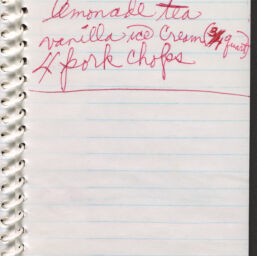 lemonade tea
vanilla ice cream (3/4 quart)
4 pork chops